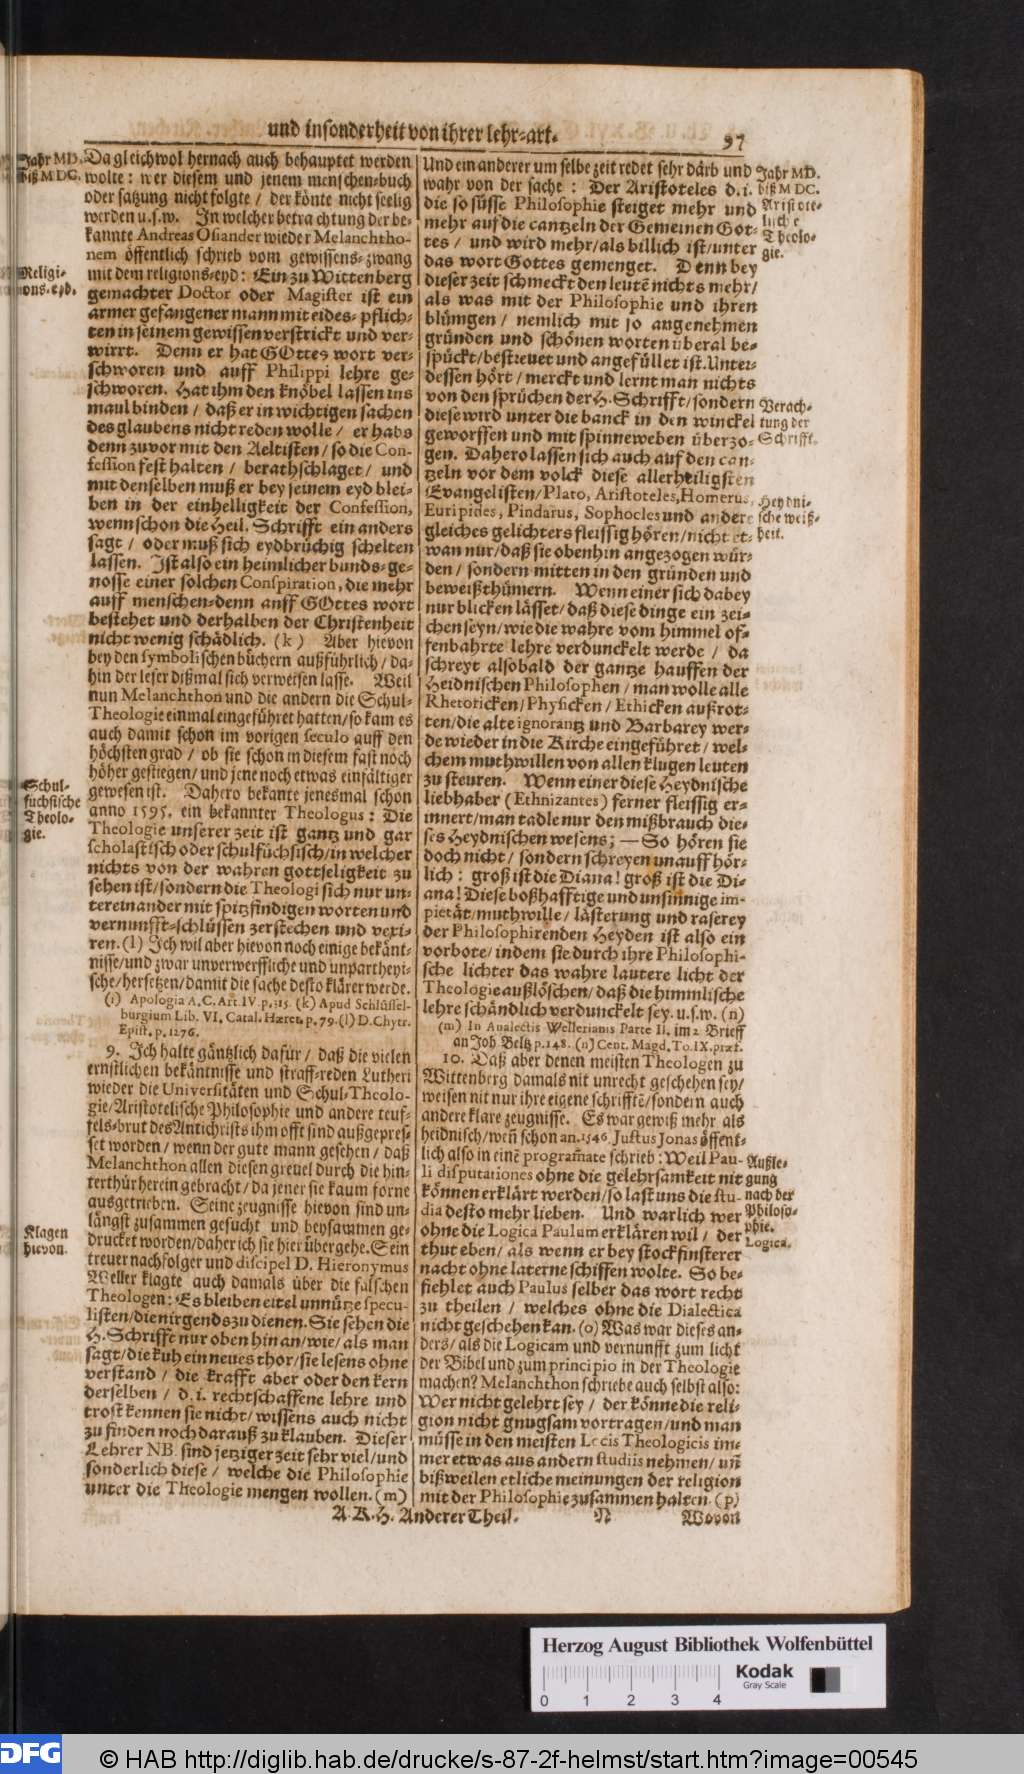 und insonderheit von ihrer lehr-art.
97
Jahr MD.
biß M DC.
Da gleichwol hernach auch behauptet werden
wolte: wer diesem und jenem menschen-buch
oder satzung nicht folgte / der könte nicht seelig
werden u.s.w. In welcher betrachtung der be-
kannte Andreas Osiander wieder Melanchtho-
nem öffentlich schrieb vom gewissens-zwang
Religi-
ons-eyd.
mit dem religions-eyd: Ein zu Wittenberg
gemachter Doctor oder Magister ist ein
armer gefangener mann mit eides-pflich-
ten in seinem gewissen verstrickt und ver-
wirrt. Denn er hat GOttes wort ver-
schworen und auff Philippi lehre ge-
schworen. Hat ihm den knöbel lassen ins
maul binden / daß er in wichtigen sachen
des glaubens nicht reden wolle / er habs
denn zuvor mit den Aeltisten / so die Con-
fession fest halten / berathschlaget / und
mit denselben muß er bey seinem eyd blei-
ben in der einhelligkeit der Confession,
wenn schon die Heil. Schrifft ein anders
sagt / oder muß sich eydbrüchig schelten
lassen. Ist also ein heimlicher bunds-ge-
nosse einer solchen Conspiration, die mehr
auff menschen-denn anff GOttes wort
bestehet und derhalben der Christenheit
nicht wenig schädlich. (k) Aber hievon
bey den symbolischen büchern außführlich / da-
hin der leser dißmal sich verweisen lasse. Weil
nun Melanchthon und die andern die Schul-
Theologie einmal eingeführet hatten/so kam es
auch damit schon im vorigen seculo auff den
höchsten grad / ob sie schon in diesem fast noch
höher gestiegen/und jene noch etwas einfältiger
Schul-
füchsische
Theolo-
gie.
gewesen ist. Dahero bekante jenesmal schon
anno 1595. ein bekannter Theologus: Die
Theologie unserer zeit ist gantz und gar
scholastisch oder schulfüchsisch/in welcher
nichts von der wahren gottseligkeit zu
sehen ist/sondern die Theologi sich nur un-
tereinander mit spitzfindigen worten und
vernunfft-schlüssen zerstechen und vexi-
ren. (l) Ich wil aber hievon noch einige bekänt-
nisse/und zwar unverwerffliche und unpartheyi-
sche/hersetzen/damit die sache desto klärer werde.
(i) Apologia A.C. Art. IV. p. 315. (k) Apud Schlüssel-
burgium Lib. VI. Catal. Hæret. p. 79. (l) D. Chytr.
Epist. p. 1276.
9. Ich halte gäntzlich dafür / daß die vielen
ernstlichen bekäntnisse und straff-reden Lutheri
wieder die Universitäten und Schul-Theolo-
gie/Aristotelische Philosophie und andere teuf-
fels-brut des Antichrists ihm offt sind außgepres-
set worden / wenn der gute mann gesehen / daß
Melanchthon allen diesen greuel durch die hin-
terthür herein gebracht/da jener sie kaum forne
ausgetrieben. Seine zeugnisse hievon sind un-
längst zusammen gesucht und beysammen ge-
Klagen
hievon.
drucket worden/daher ich sie hier übergehe. Sein
treuer nachfolger und discipel D. Hieronymus
Weller klagte auch damals über die falschen
Theologen: Es bleiben eitel unnütze specu-
listen/die nirgends zu dienen. Sie sehen die
H. Schrifft nur oben hin an/wie/als man
sagt/die kuh ein neues thor/sie lesens ohne
verstand / die krafft aber oder den kern
derselben / d.i. rechtschaffene lehre und
trost kennen sie nicht/wissens auch nicht
zu finden noch darauß zu klauben. Dieser
Lehrer NB. sind jetziger zeit sehr viel/und
sonderlich diese / welche die Philosophie
unter die Theologie mengen wollen. (m)
Und ein anderer um selbe zeit redet sehr dârb und
wahr von der sache : Der Aristoteles d.i.
die so süsse Philosophie steiget mehr und
mehr auf die cantzeln der Gemeinen Got-
tes / und wird mehr/als billich ist/unter
das wort Gottes gemenget. Denn bey
dieser zeit schmeckt den leutē nichts mehr/
als was mit der Philosophie und ihren
blümgen / nemlich mit so angenehmen
gründen und schönen worten überal be-
spückt/bestreuet und angefüllet ist. Unter-
dessen hört / merckt und lernt man nichts
von den sprüchen der H. Schrifft/sondern
diese wird unter die banck in den winckel
geworffen und mit spinneweben überzo-
gen. Dahero lassen sich auch auf den can-
tzeln vor dem volck diese allerheiligsten
Evangelisten/Plato, Aristoteles, Homerus,
Euripides, Pindarus, Sophocles und andere
gleiches gelichters fleissig hören/nicht et-
wan nur/daß sie obenhin angezogen wür-
den / sondern mitten in den gründen und
beweißthümern. Wenn einer sich dabey
nur blicken lässet/daß diese dinge ein zei-
chen seyn/wie die wahre vom himmel of-
fenbahrte lehre verdunckelt werde / da
schreyt alsobald der gantze hauffen der
Heidnischen Philosophen / man wolle alle
Rhetoricken/Physicken/Ethicken außrot-
ten/die alte ignorantz und Barbarey wer-
de wieder in die Kirche eingeführet / wel-
chem muthwillen von allen klugen leuten
zu steuren. Wenn einer diese Heydnische
liebhaber (Ethnizantes) ferner fleissig er-
innert/man tadle nur den mißbrauch die-
ses Heydnischen wesens; — So hören sie
doch nicht / sondern schreyen unauff hör-
lich : groß ist die Diana! groß ist die Di-
ana! Diese boßhafftige und unsinnige im-
pietät/muthwille / lästerung und raserey
der Philosophirenden Heyden ist also ein
vorbote/indem sie durch ihre Philosophi-
sche lichter das wahre lautere licht der
Theologie außlöschen/daß die himmlische
lehre schändlich verdunckelt sey. u.s.w. (n)
(m) In Analectis Wellerianis Parte II. im 2 Brieff
an Joh Beltz p. 148. (n) Cent. Magd. To. IX. præf.
10. Daß aber denen meisten Theologen zu
Wittenberg damals nit unrecht geschehen sey/
weisen nit nur ihre eigene schrifftē/sondern auch
andere klare zeugnisse. Es war gewiß mehr als
heidnisch/weñ schon an. 1546 Justus Jonas öffent-
lich also in einē program̃ate schrieb: Weil Pau-
li disputationes ohne die gelehrsamkeit nit
können erklärt werden/so last uns die stu-
dia desto mehr lieben. Und warlich wer
ohne die Logica Paulum erklären wil / der
thut eben / als wenn er bey stockfinsterer
nacht ohne laterne schiffen wolte. So be-
fiehlet auch Paulus selber das wort recht
zu theilen / welches ohne die Dialectica
nicht geschehen kan. (o) Was war dieses an-
ders/als die Logicam und vernunfft zum licht
der Bibel und zum principio in der Theologie
machen? Melanchthon schriebe auch selbst also:
Wer nicht gelehrt sey / der könne die reli-
gion nicht gnugsam vortragen/und man
müsse in den meisten Locis Theologicis im-
mer etwas aus andern studiis nehmen / uñ
bißweilen etliche meinungen der religion
mit der Philosophie zusammen halten. (p)
Jahr MD.
biß M DC.
Aristote-
lische
Theolo-
gie.
Verach-
tung der
Schrifft.
Heydni-
sche weiß-
heit.
Außle-
gung
nach der
Philoso-
phie.
Logica.
A.K.H. Anderer Theil.
N
Wovon
Herzog August Bibliothek Wolfenbüttel
Kodak
Gray Scale
0 1 2 3 4
DFG
© HAB http://diglib.hab.de/drucke/s-87-2f-helmst/start.htm?image=00545